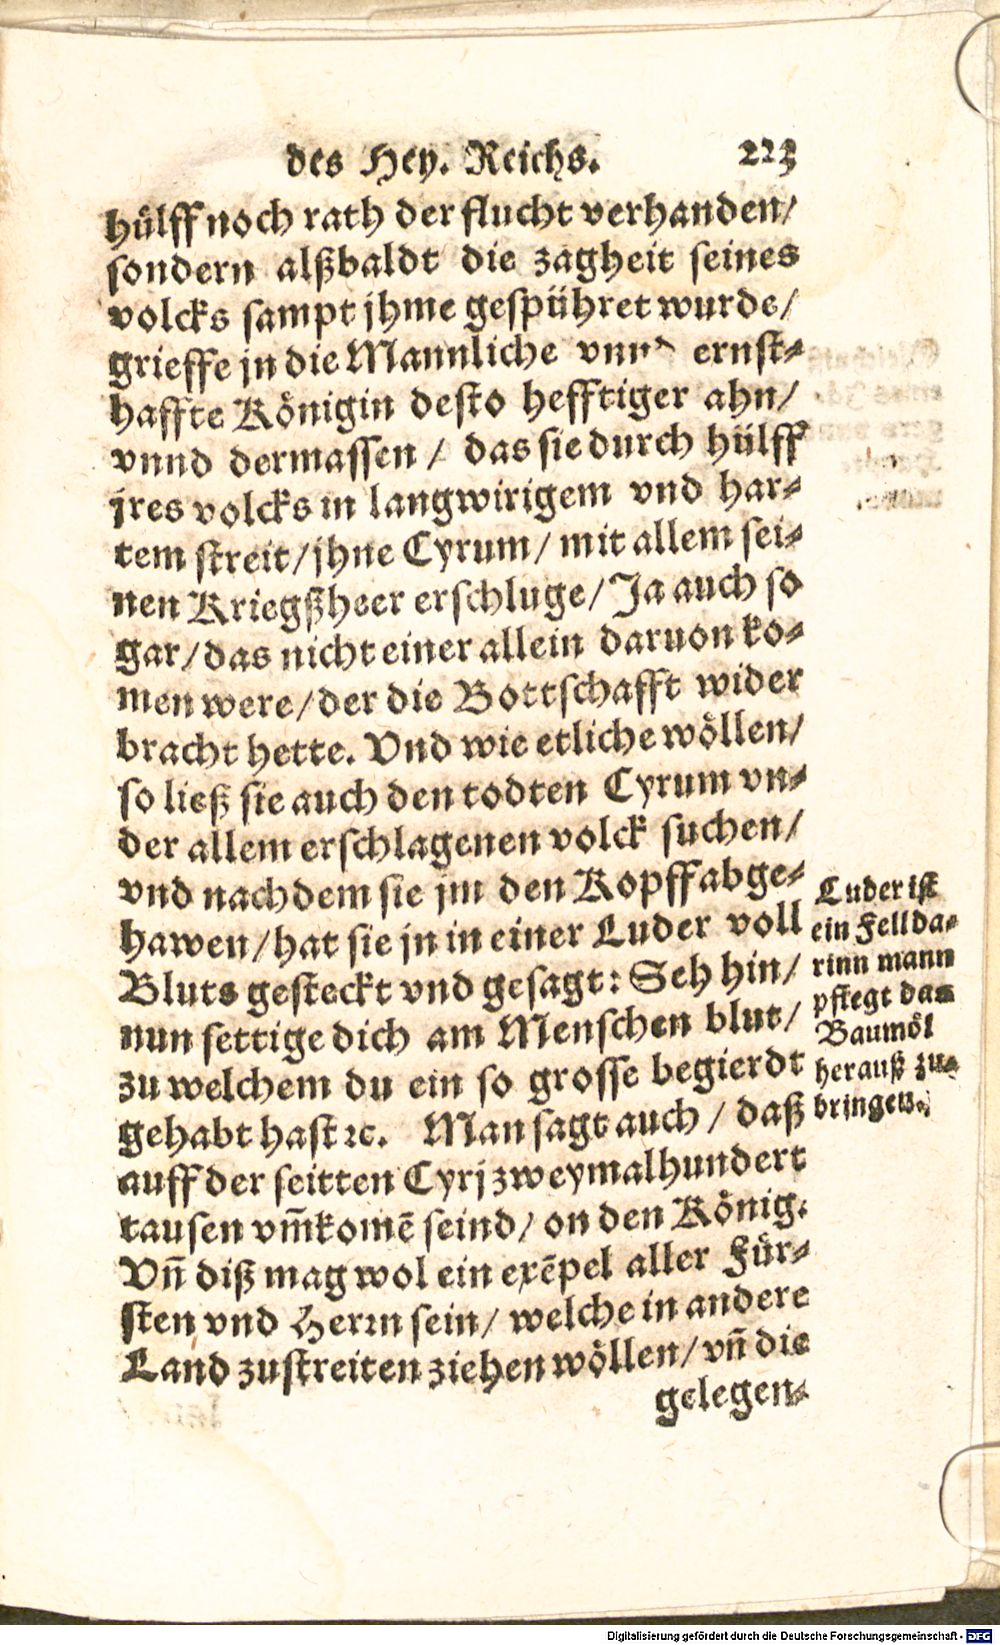 des Hey. Reichs. 223
hülff noch rath der flucht verhanden/
sondern alßbaldt die zagheit seines
volcks sampt jhme gespühret wurde/
grieffe jn die Mannliche vnnd ernst-
haffte Königin desto hefftiger ahn/
vnnd dermassen / das sie durch hülff
jres volcks in langwirigem vnd har-
tem streit/jhne Cyrum/mit allem sei-
nen Kriegßheer erschluge/Ja auch so
gar/das nicht einer allein daruon ko-
men were/der die Bottschafft wider
bracht hette. Vnd wie etliche wöllen/
so ließ sie auch den todten Cyrum vn-
der allem erschlagenen volck suchen/
vnd nachdem sie jm den Kopff abge-
hawen/hat sie jn in einer Luder voll
Bluts gesteckt vnd gesagt: Seh hin/
nun settige dich am Menschen blut/
zu welchem du ein so grosse begierdt
gehabt hast ꝛc. Man sagt auch / daß
auff der seitten Cyrj zweymalhundert
tausen vm̃komẽ seind/ on den König.
Vñ diß mag wol ein exẽpel aller Für-
sten vnd Herꝛn sein/ welche in andere
Land zustreiten ziehen wöllen/ vñ die
gelegen-
Luder ist
ein Fell da-
rinn mann
pflegt das
Baumöl
herauß zu-
bringen.
Digitalisierung gefördert durch die Deutsche Forschungsgemeinschaft - DFG